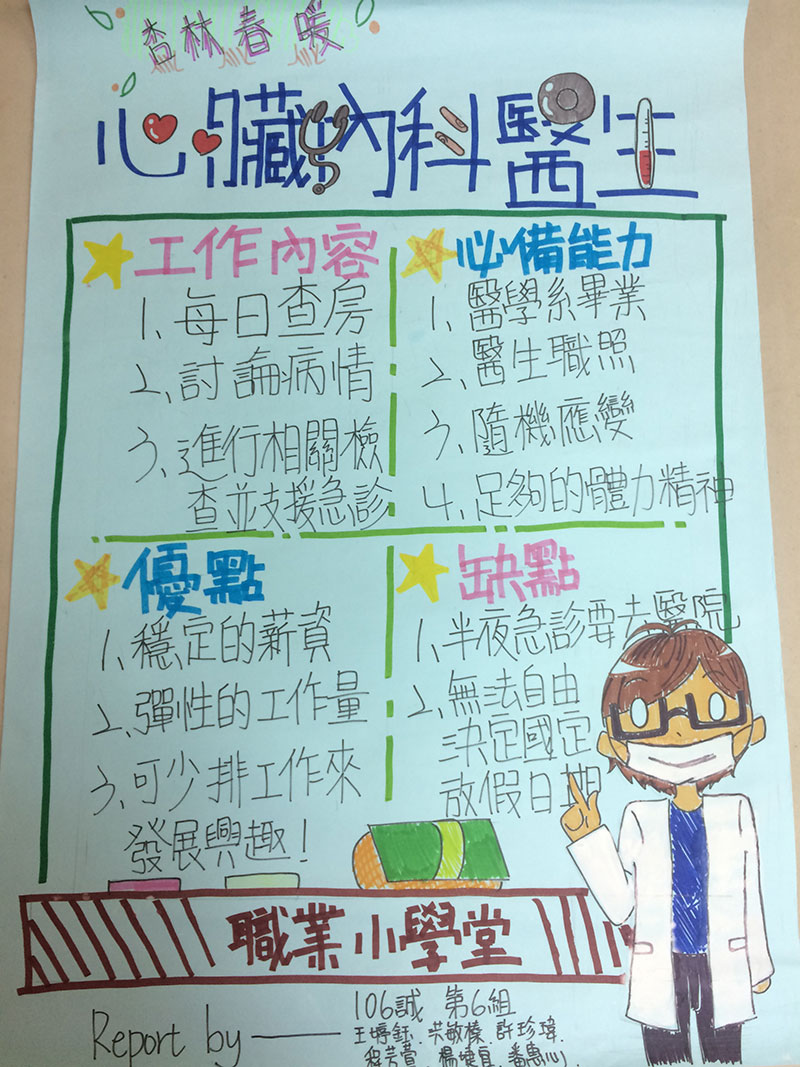 杏林春暖
心臟內科醫生
工作內容
1、每日查房
2、討論病情
3、進行相關檢
查並支援急診
必備能力
1、醫學系畢業
2、醫生職照
3、隨機應變
4、足夠的體力精神
優點
1、穩定的薪資
2、彈性的工作量
3、可少排工作來
發展興趣!
缺點
1、半夜急診要去醫院
2、無法自由
決定國定
放假日期
職業小學堂
Report by —— 106誠 第6組
王婷鈺、洪敏榛、許珍瑋、
程芳萱、